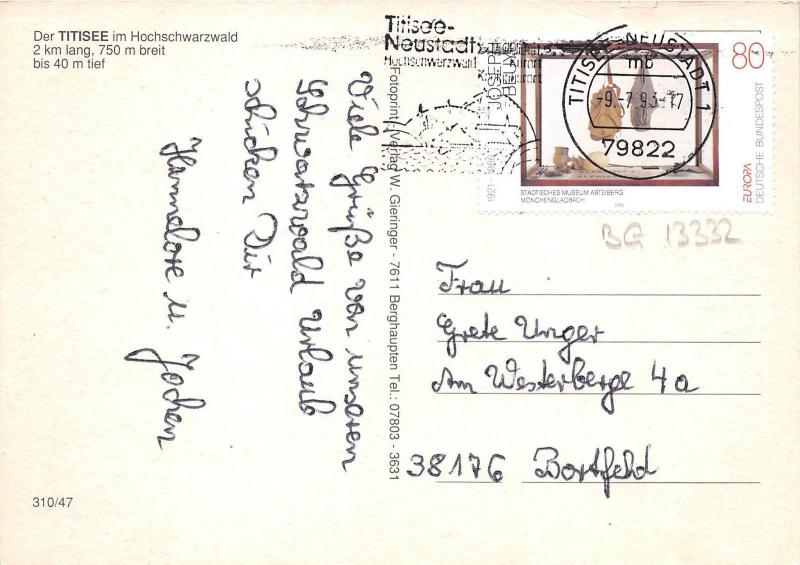 Der TITISEE im Hochschwarzwald
2 km lang, 750 m breit
bis 40 m tief
Viele Grüße von unseren
Schwarzwald Urlaub
schicken Dir
Hannelore u. Jochen
310/47
Fotoprint-Verlag W. Gieringer - 7611 Berghaupten Tel.: 07803 - 3631
Titisee-
Neustadt
Hochschwarzwald
TITISEE-NEUSTADT 1
mb
-9.-7.93-17
79822
80
JOSEPH
1921
STÄDTISCHES MUSEUM ABTEIBERG
MÖNCHENGLADBACH
1993
EUROPA
DEUTSCHE BUNDESPOST
BG 13332
Frau
Grete Unger
Am Westerberge 4a
38176 Bortfeld